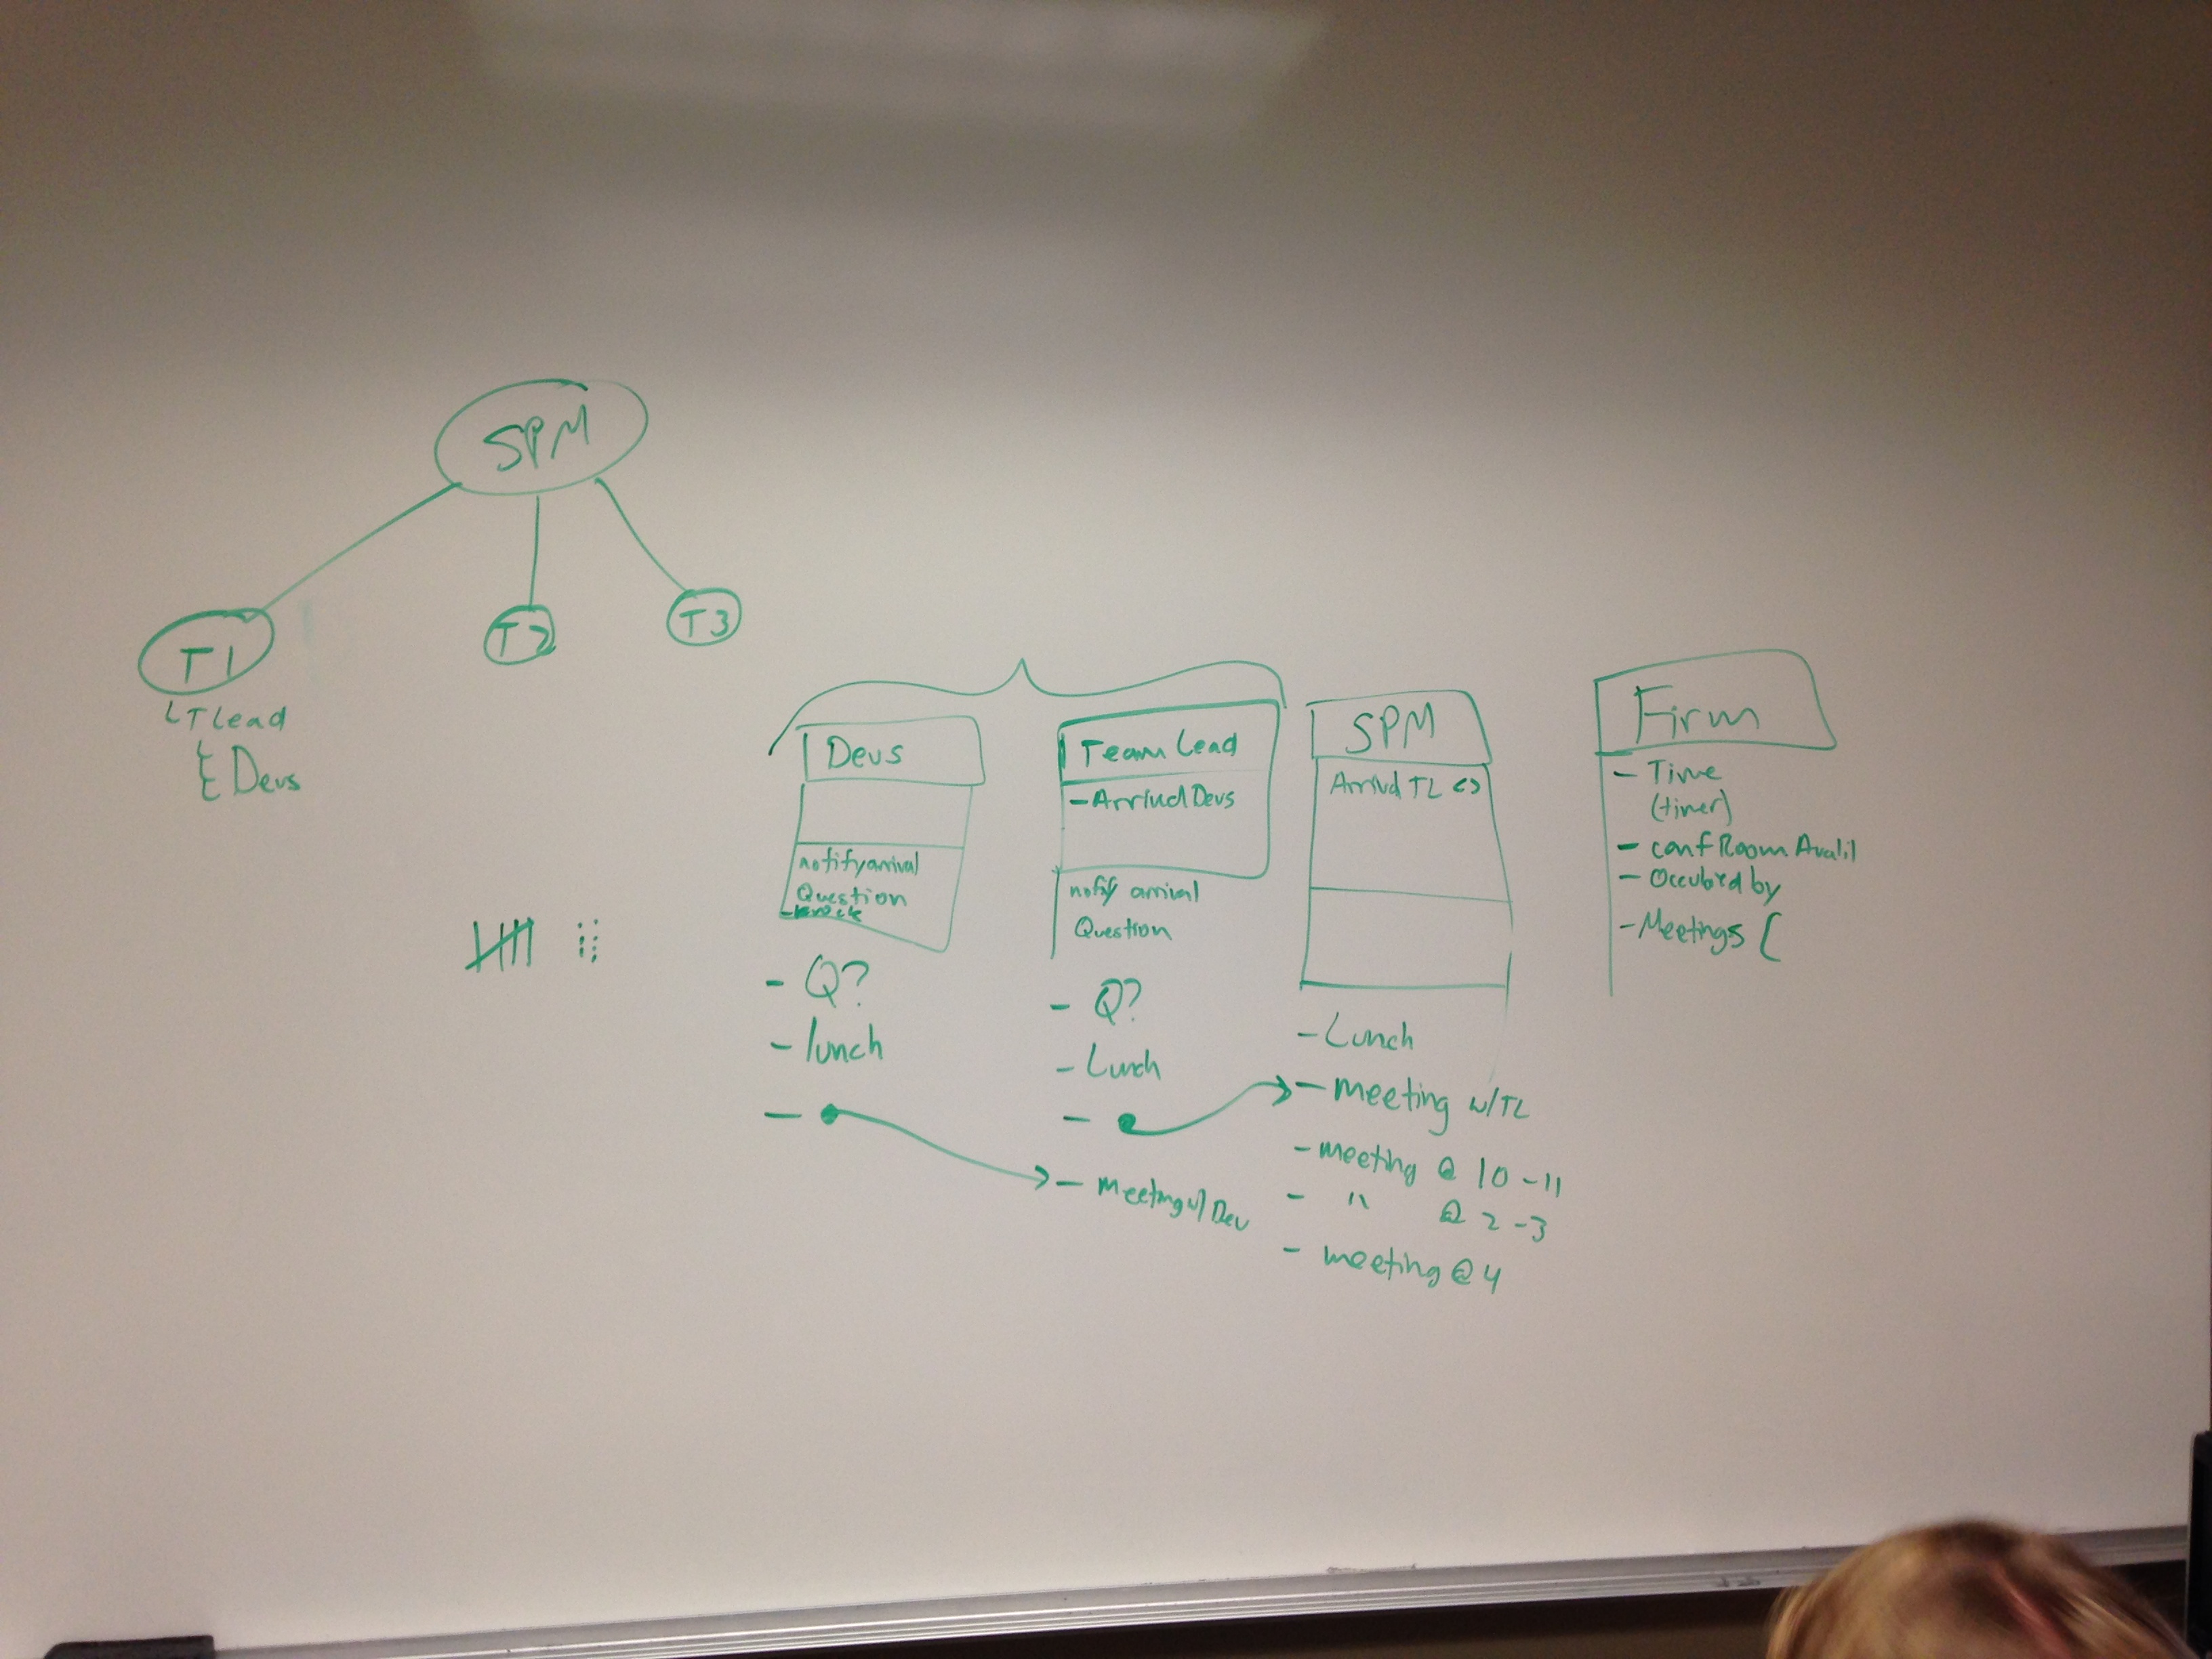 SPM
T1
T2
T3
TLead
Devs
Devs
notifyarrival
Question
- knock
- Q?
- lunch
-
Team Lead
- Arrived Devs
notify arrival
Question
- Q?
- Lunch
-
- Meeting w/ Dev
SPM
Arrived TL <>
- Lunch
- meeting w/TL
- meeting @ 10 - 11
- " @ 2 - 3
- meeting @ 4
Firm
- Time
(timer)
- conf Room Avalil
- Occubied by
- Meetings [